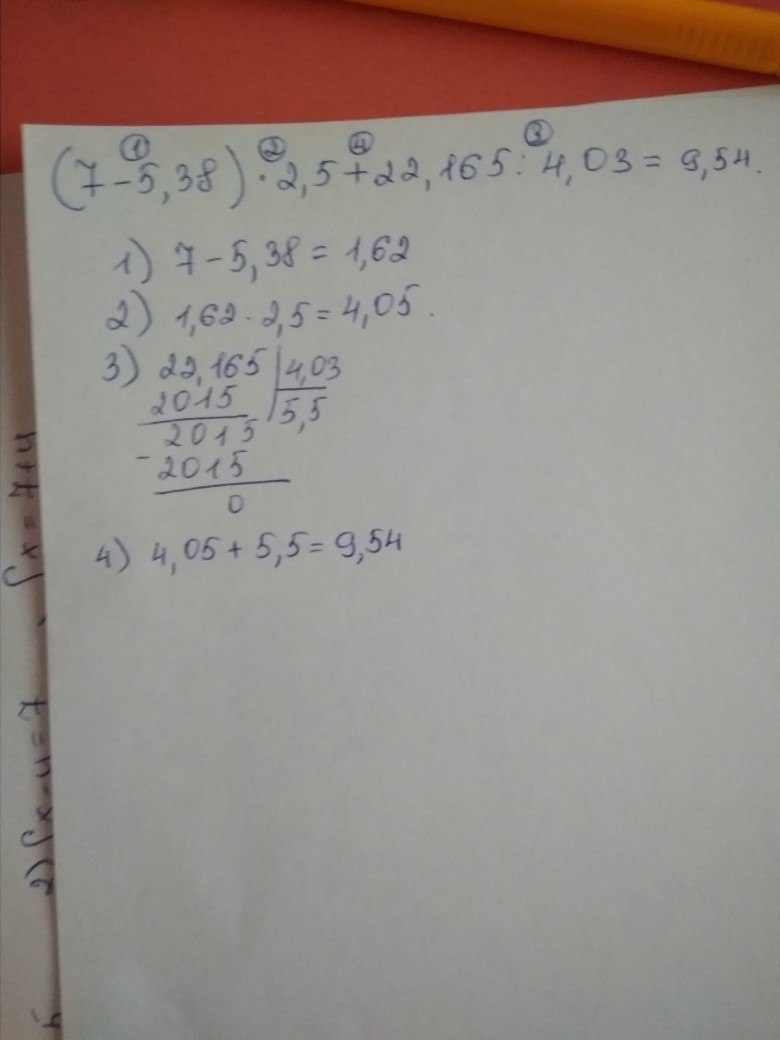 ① ② ④ ③
(7-5,38)·2,5+22,165:4,03=9,54.
1) 7-5,38=1,62
2) 1,62·2,5=4,05.
3) 22,165 | 4,03
2015 | 5,5
2015
- 2015
0
4) 4,05+5,5=9,54
x=7+y
2) { x-y=7